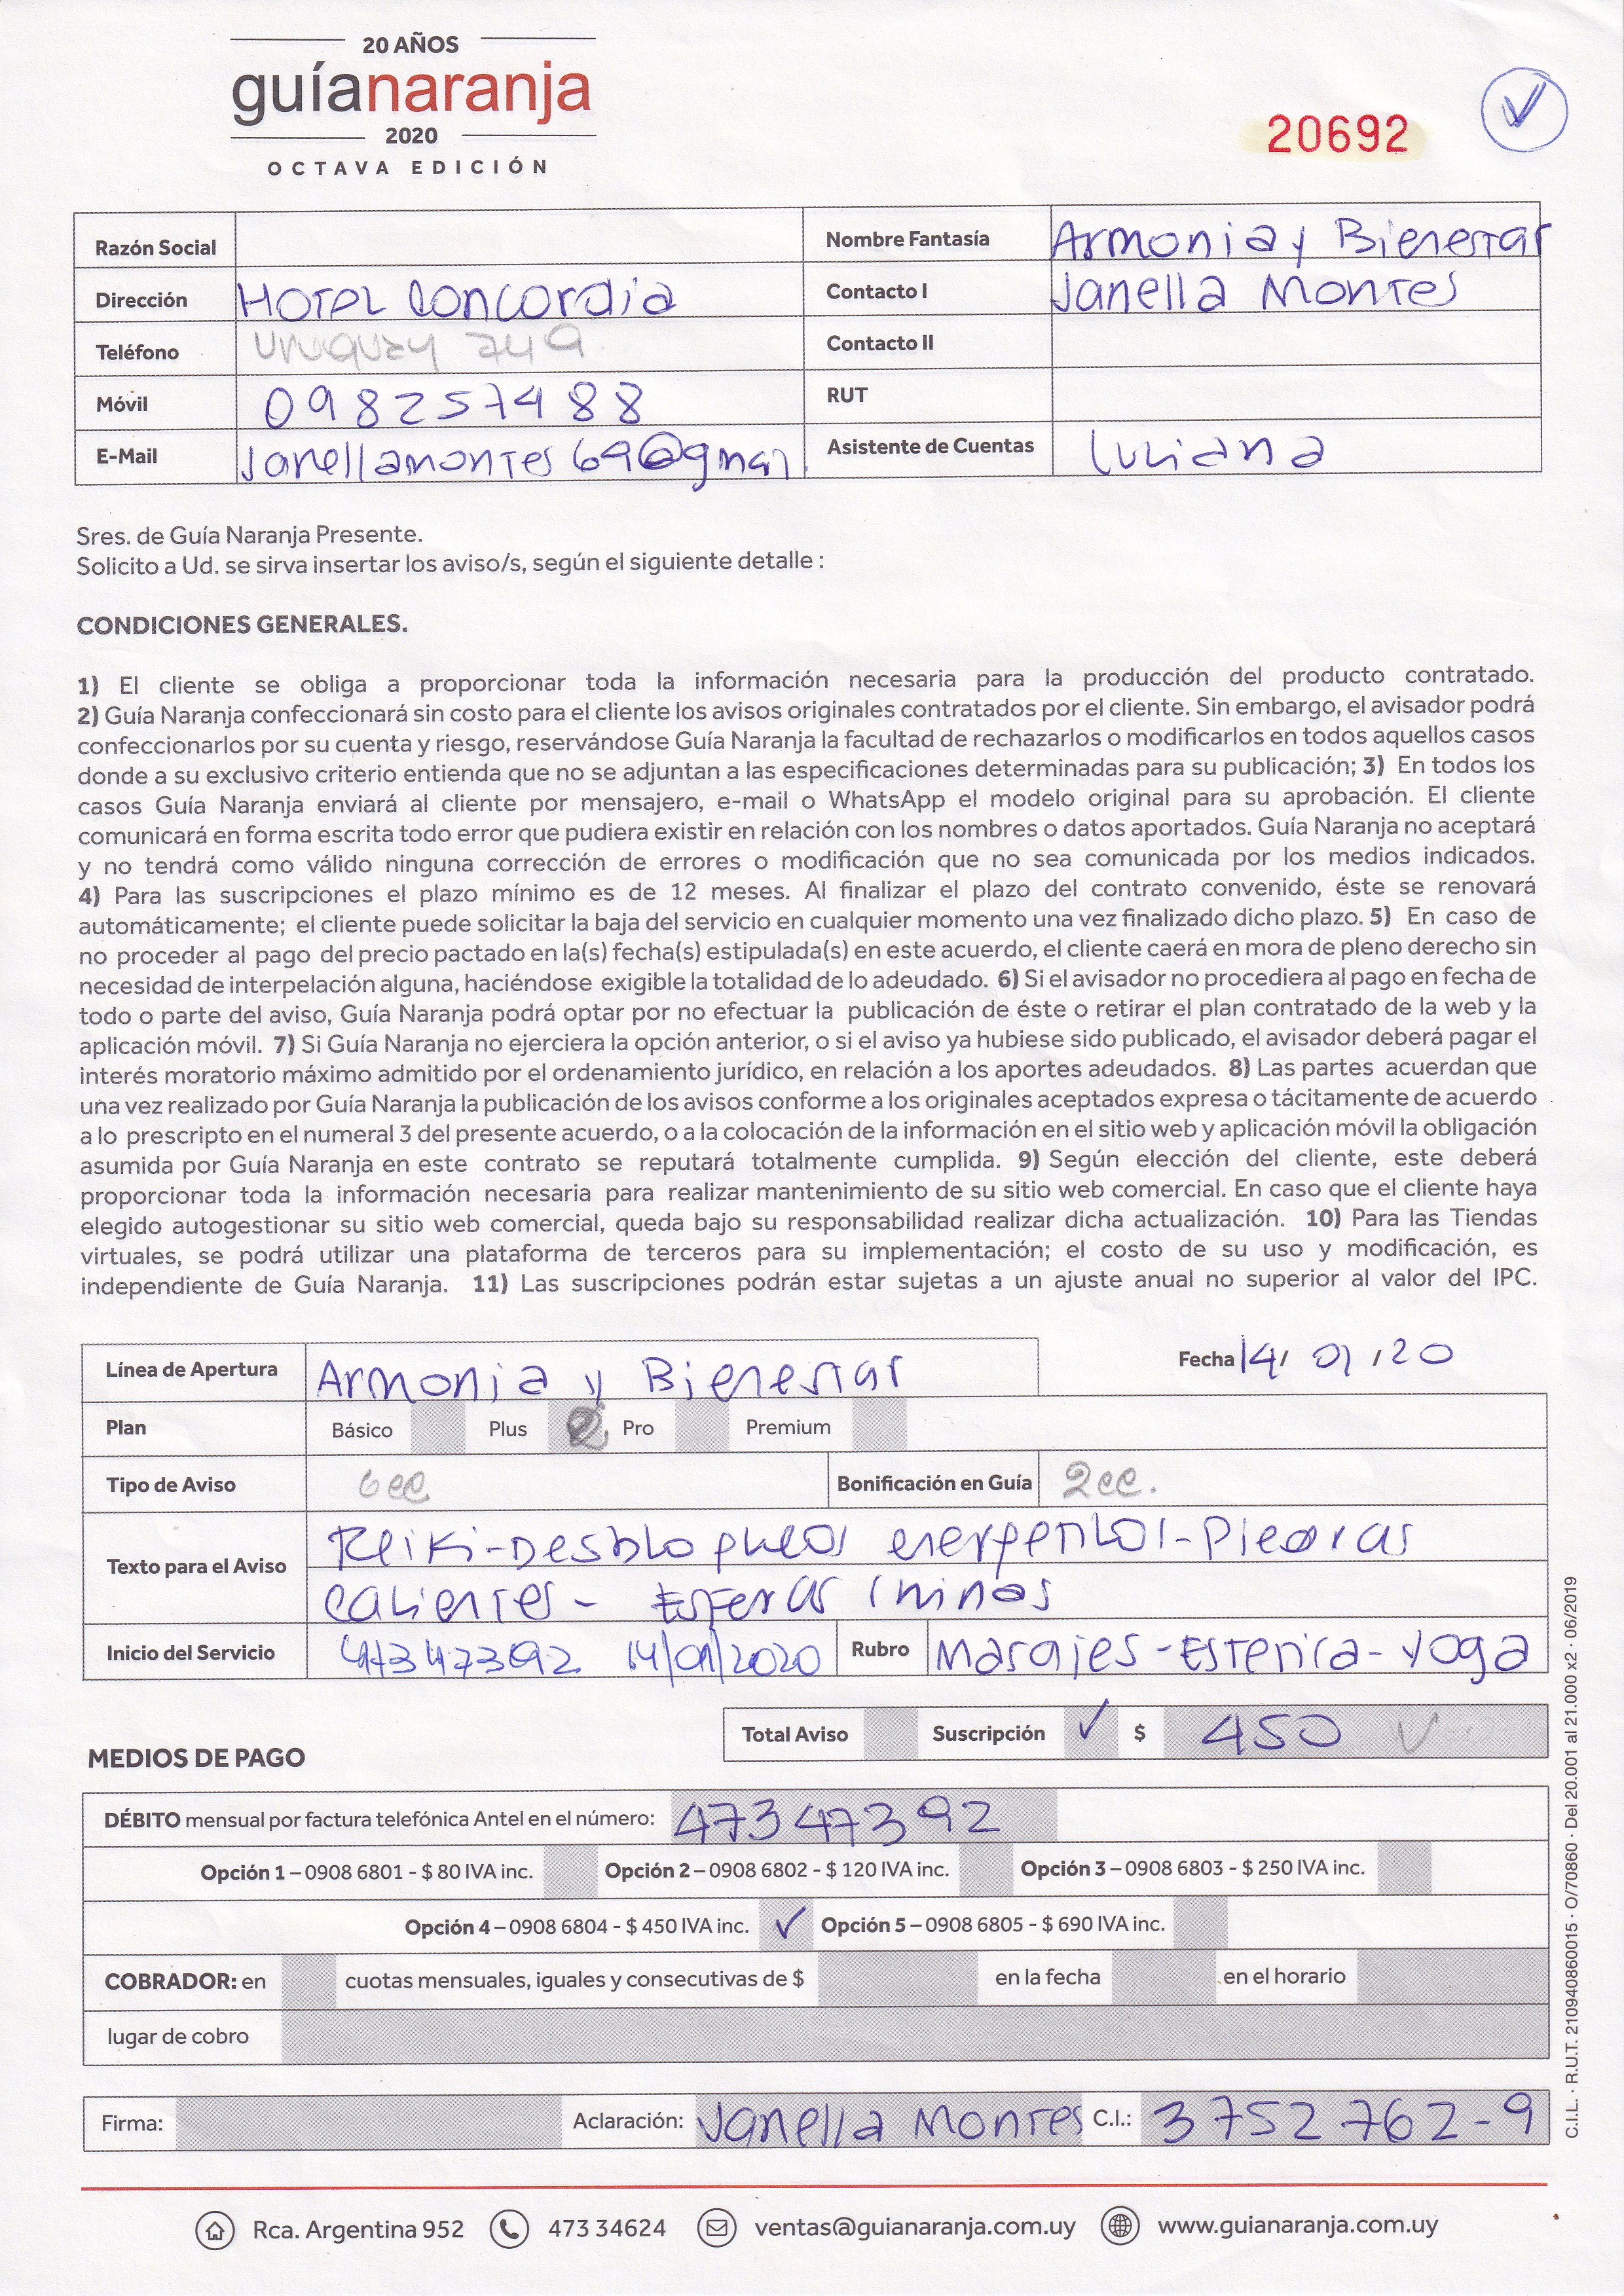 20 AÑOS
guíanaranja
2020
OCTAVA EDICIÓN
20692
Razón Social Nombre Fantasía Armonia y Bienestar
Dirección Hotel Concordia Contacto I Janella Montes
Teléfono Uruguay 749 Contacto II
Móvil 098257488 RUT
E-Mail Janellamontes69@gmai. Asistente de Cuentas Luciana
Sres. de Guía Naranja Presente.
Solicito a Ud. se sirva insertar los aviso/s, según el siguiente detalle :
CONDICIONES GENERALES.
1) El cliente se obliga a proporcionar toda la información necesaria para la producción del producto contratado.
2) Guía Naranja confeccionará sin costo para el cliente los avisos originales contratados por el cliente. Sin embargo, el avisador podrá
confeccionarlos por su cuenta y riesgo, reservándose Guía Naranja la facultad de rechazarlos o modificarlos en todos aquellos casos
donde a su exclusivo criterio entienda que no se adjuntan a las especificaciones determinadas para su publicación; 3) En todos los
casos Guía Naranja enviará al cliente por mensajero, e-mail o WhatsApp el modelo original para su aprobación. El cliente
comunicará en forma escrita todo error que pudiera existir en relación con los nombres o datos aportados. Guía Naranja no aceptará
y no tendrá como válido ninguna corrección de errores o modificación que no sea comunicada por los medios indicados.
4) Para las suscripciones el plazo mínimo es de 12 meses. Al finalizar el plazo del contrato convenido, éste se renovará
automáticamente; el cliente puede solicitar la baja del servicio en cualquier momento una vez finalizado dicho plazo. 5) En caso de
no proceder al pago del precio pactado en la(s) fecha(s) estipulada(s) en este acuerdo, el cliente caerá en mora de pleno derecho sin
necesidad de interpelación alguna, haciéndose exigible la totalidad de lo adeudado. 6) Si el avisador no procediera al pago en fecha de
todo o parte del aviso, Guía Naranja podrá optar por no efectuar la publicación de éste o retirar el plan contratado de la web y la
aplicación móvil. 7) Si Guía Naranja no ejerciera la opción anterior, o si el aviso ya hubiese sido publicado, el avisador deberá pagar el
interés moratorio máximo admitido por el ordenamiento jurídico, en relación a los aportes adeudados. 8) Las partes acuerdan que
una vez realizado por Guía Naranja la publicación de los avisos conforme a los originales aceptados expresa o tácitamente de acuerdo
a lo prescripto en el numeral 3 del presente acuerdo, o a la colocación de la información en el sitio web y aplicación móvil la obligación
asumida por Guía Naranja en este contrato se reputará totalmente cumplida. 9) Según elección del cliente, este deberá
proporcionar toda la información necesaria para realizar mantenimiento de su sitio web comercial. En caso que el cliente haya
elegido autogestionar su sitio web comercial, queda bajo su responsabilidad realizar dicha actualización. 10) Para las Tiendas
virtuales, se podrá utilizar una plataforma de terceros para su implementación; el costo de su uso y modificación, es
independiente de Guía Naranja. 11) Las suscripciones podrán estar sujetas a un ajuste anual no superior al valor del IPC.
Línea de Apertura Armonia y Bienestar Fecha 14/ 01 /20
Plan Básico Plus Pro Premium
Tipo de Aviso 6cc Bonificación en Guía 2cc.
Texto para el Aviso Reiki-Desbloqueos energeticos-Piedras
calientes - Esferas chinas
Inicio del Servicio 47347392 14/01/2020 Rubro Masajes-Estetica-Yoga
Total Aviso Suscripción ✓ $ 450
MEDIOS DE PAGO
DÉBITO mensual por factura telefónica Antel en el número: 47347392
Opción 1 – 0908 6801 - $ 80 IVA inc. Opción 2 – 0908 6802 - $ 120 IVA inc. Opción 3 – 0908 6803 - $ 250 IVA inc.
Opción 4 – 0908 6804 - $ 450 IVA inc. ✓ Opción 5 – 0908 6805 - $ 690 IVA inc.
COBRADOR: en cuotas mensuales, iguales y consecutivas de $ en la fecha en el horario
lugar de cobro
Firma: Aclaración: Janella Montes C.I.: 3752762-9
C.I.L. · R.U.T. 210940860015 · O/70860 · Del 20.001 al 21.000 x2 · 06/2019
Rca. Argentina 952 473 34624 ventas@guianaranja.com.uy www.guianaranja.com.uy